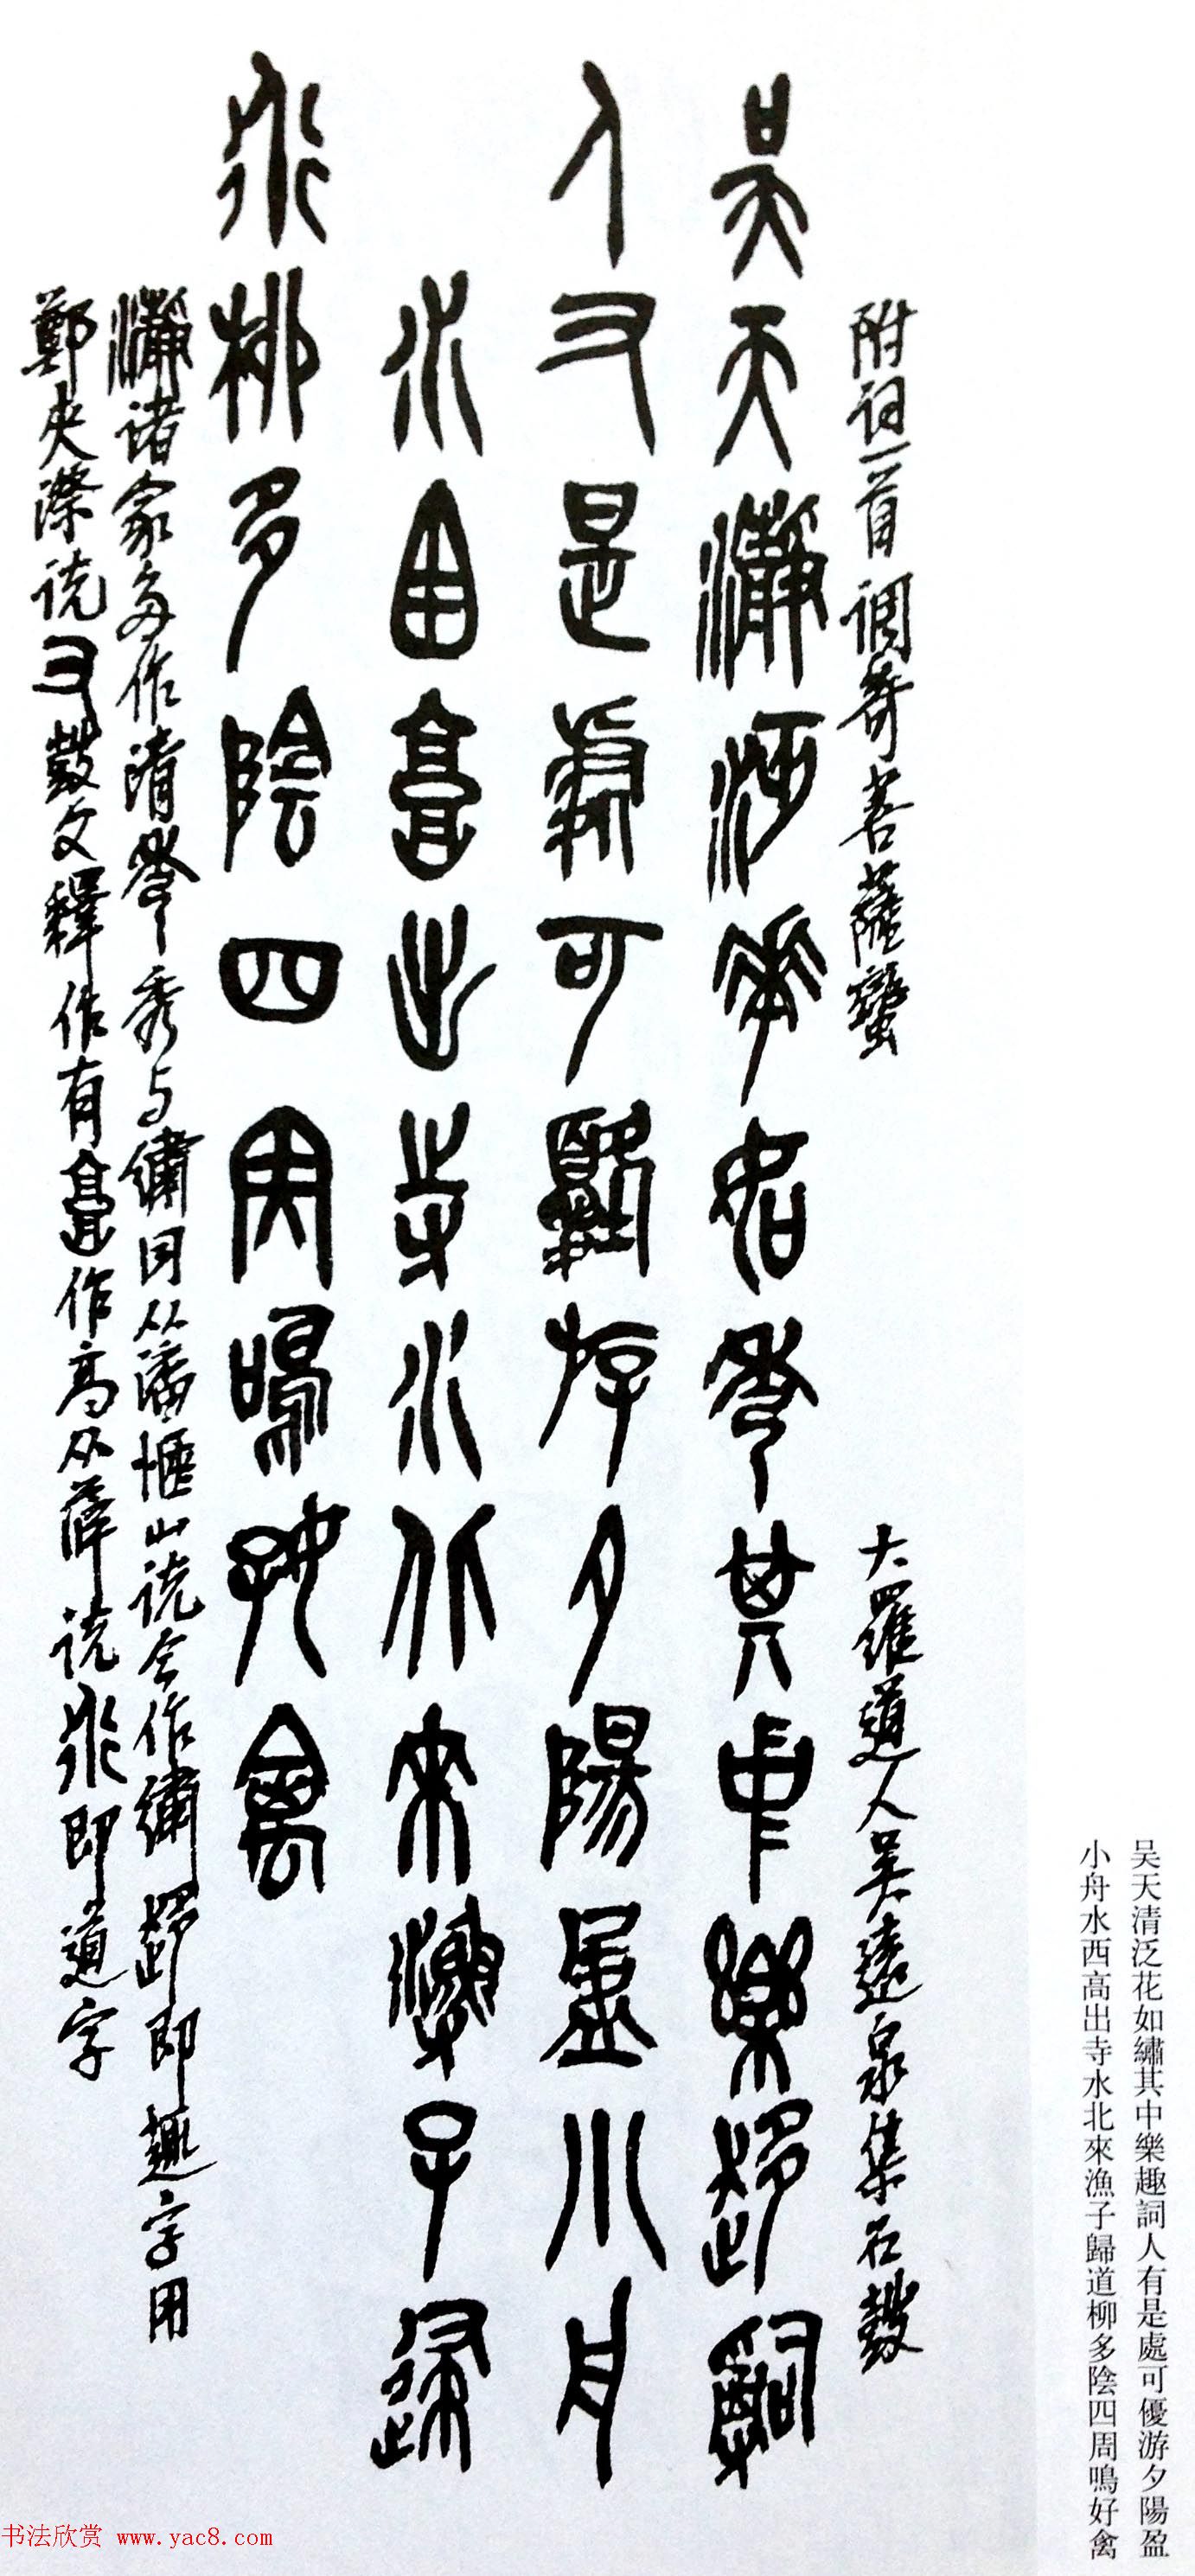 吴天清泛花如繡其中樂趣詞人有是處可優游夕陽盈
小舟水西高出寺水北來漁子歸道柳多陰四周鳴好禽
附词一首 调寄菩薩蠻
大羅道人吴遠泉集石鼓
吴天瀞泛花如秀其中樂趍嗣
人又是處可憂斿夕陽盈小舟
水西高出寺水北來漁子歸
道柳多陰四周鳴好禽
瀞诸家多作清秀与繡同从潘愜山说今作繡趍即趣字用
鄭夹漈说又鼓文釋作有高作高从薛说道即道字
书法欣赏 www.yac8.com